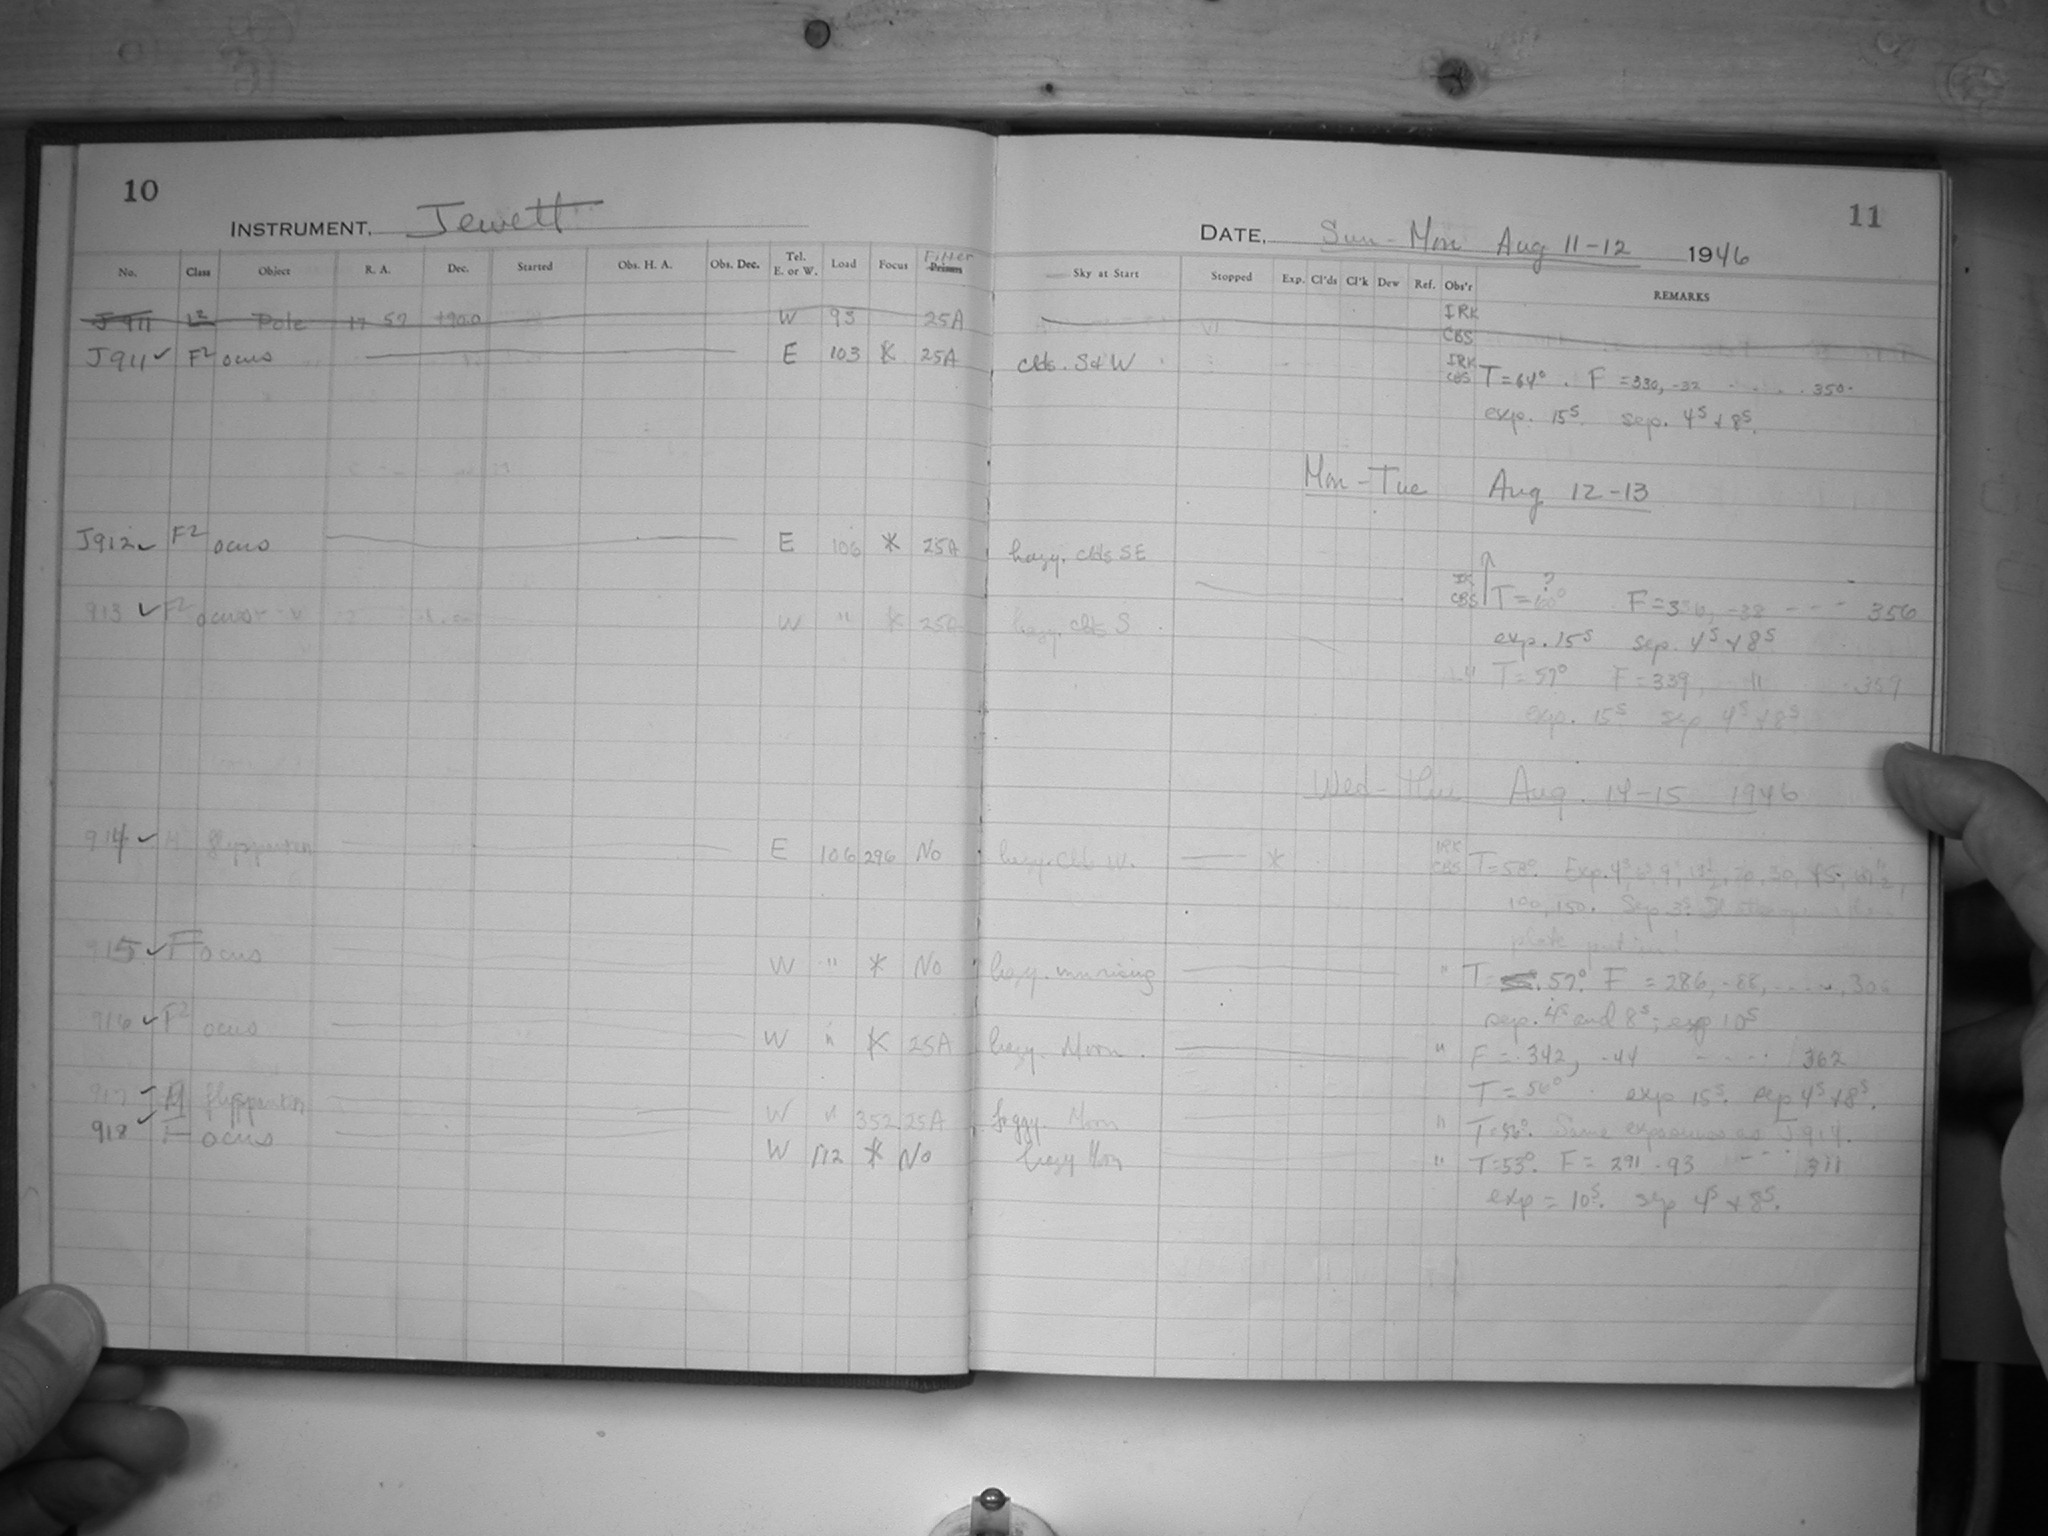 10
INSTRUMENT, Jewett
No. Class Object R. A. Dec. Started Obs. H. A. Obs. Dec. Tel. E. or W. Load Focus Filter Prisms
J911 L2 Pole 17 57 +90.0 W 93 25A
J911 ✓ F2ocus E 103 * 25A
J912 ✓ F2ocus E 106 * 25A
913 ✓ F2ocus W " * 25A
914 ✓ E 106 296 No
915 ✓ Focus W " * No
916 ✓ F2ocus W " * 25A
917 ✓ W " 352 25A
918 ✓ Focus W 112 * No
11
DATE, Sun - Mon Aug 11-12 1946
Sky at Start Stopped Exp. Cl'ds Cl'k Dew Ref. Obs'r REMARKS
IRK
CBS
clds. S & W IRK CBS T=64°. F = 330, -32 - . . . . 350.
exp. 15s. sep. 4s & 8s.
Mon-Tue Aug 12-13
hazy. clds SE CBS T=60°? F=336, -38 - - - 356
exp. 15s sep. 4s & 8s
hazy. clds S " T=57° F=339, 41 359
exp. 15s sep 4s & 8s
Wed-Thu Aug. 14-15 1946
hazy. Cld W. * IRK CBS T=58°. Exp. 4s, 6, 9, 13½, 20, 30, 45,
100, 150. Sep 3s.
plate
hazy. " T= 57°. F = 286, -88,
sep. 4s and 8s; exp 10s
hazy. Moon. " F = 342, -44 - - . . 362
T = 56° exp 15s. sep 4s & 8s.
foggy. Moon " T=56°. Same exposures as J914.
hazy Mon " T=53°. F= 291 . 93 - - - 311
exp = 10s. sep 4s & 8s.